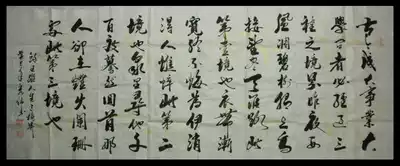 古今成大事業大
學問者必經過三
種之境界昨夜西
風凋碧樹獨上高
樓望盡天涯路此
第一境也衣帶漸
寬終不悔為伊消
得人憔悴此第二
境也眾里尋他千
百度驀然回首那
人卻在燈火闌珊
處此第三境也